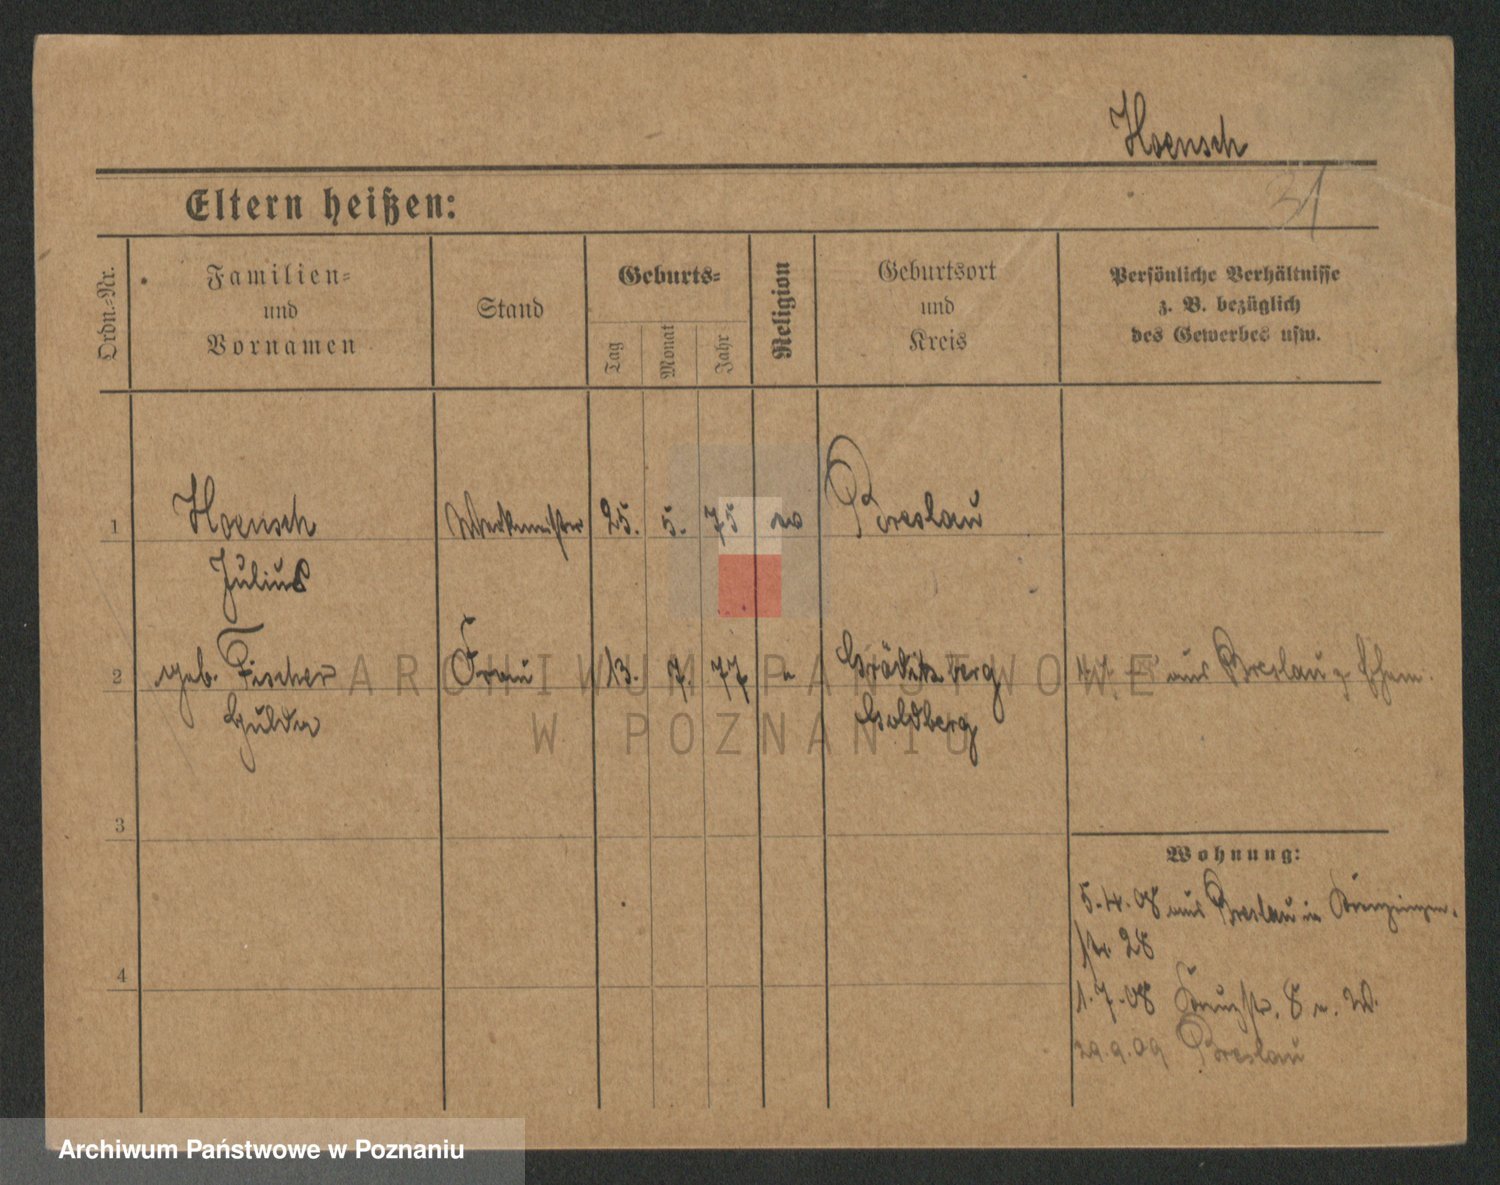 Hoensch
31
Eltern heißen:
Ordn.-Nr.
Familien-
und
Vornamen
Stand
Geburts-
Tag
Monat
Jahr
Religion
Geburtsort
und
Kreis
Persönliche Verhältnisse
z. B. bezüglich
des Gewerbes usw.
1
Hoensch
Julius
Werkmeister
25.
5.
75
ev
Breslau
2
geb. Fischer
Hulda
Frau
13.
7.
77
"
Gröditzberg
Goldberg
aus Breslau z. Ehem.
3
4
Wohnung:
5.4.08 aus Breslau in
str. 28
1.7.08 Kreuzstr. 8 n. W.
29.9.09 Breslau
ARCHIWUM PAŃSTWOWE
W POZNANIU
Archiwum Państwowe w Poznaniu